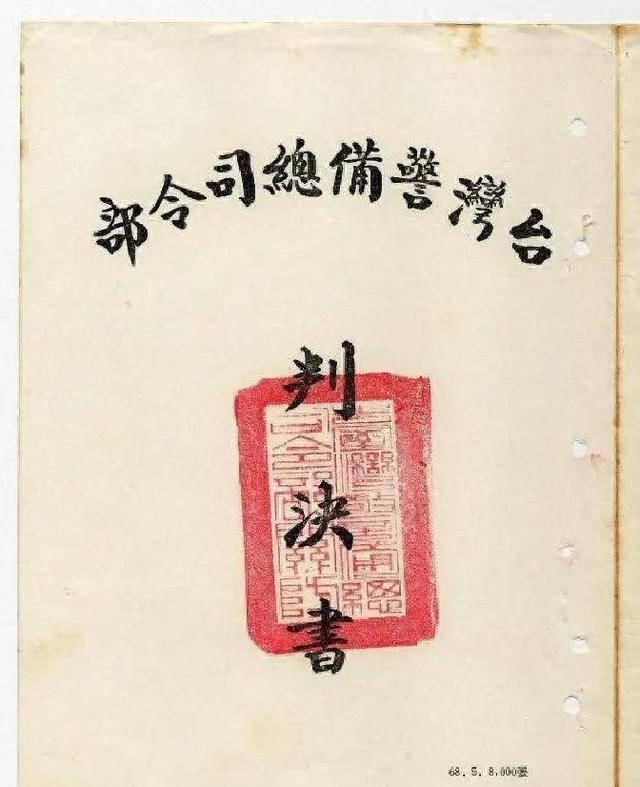 台灣警備總司令部
判決書
68. 5. 8,000張